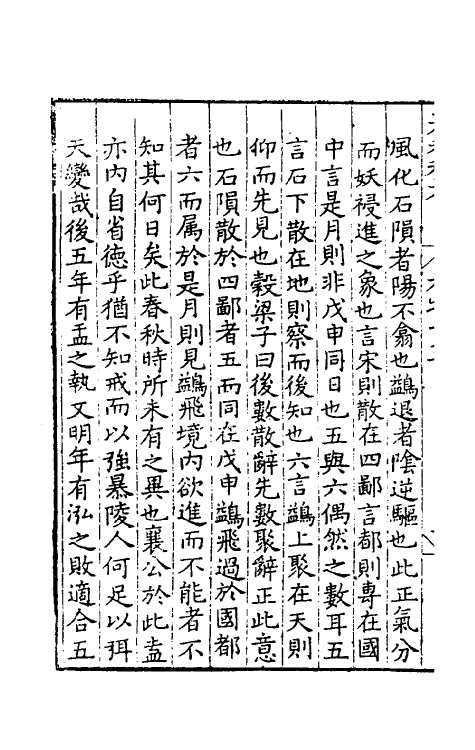 風化石隕者陽不翕也鷁退者陰逆驅也此正氣分
而妖祲進之象也言宋則散在四鄙言都則專在國
中言是月則非戊申同日也五與六偶然之數耳五
言石下散在地則察而後知也六言鷁上聚在天則
仰而先見也糓梁子曰後數散辭先數聚辭正此意
也石隕散於四鄙者五而同在戊申鷁飛過於國都
者六而属於是月則見鷁飛境内欲進而不能者不
知其何日矣此春秋時所未有之異也襄公於此盍
亦内自省徳乎猶不知戒而以強暴陵人何足以弭
天變哉後五年有盂之執又明年有泓之敗適合五